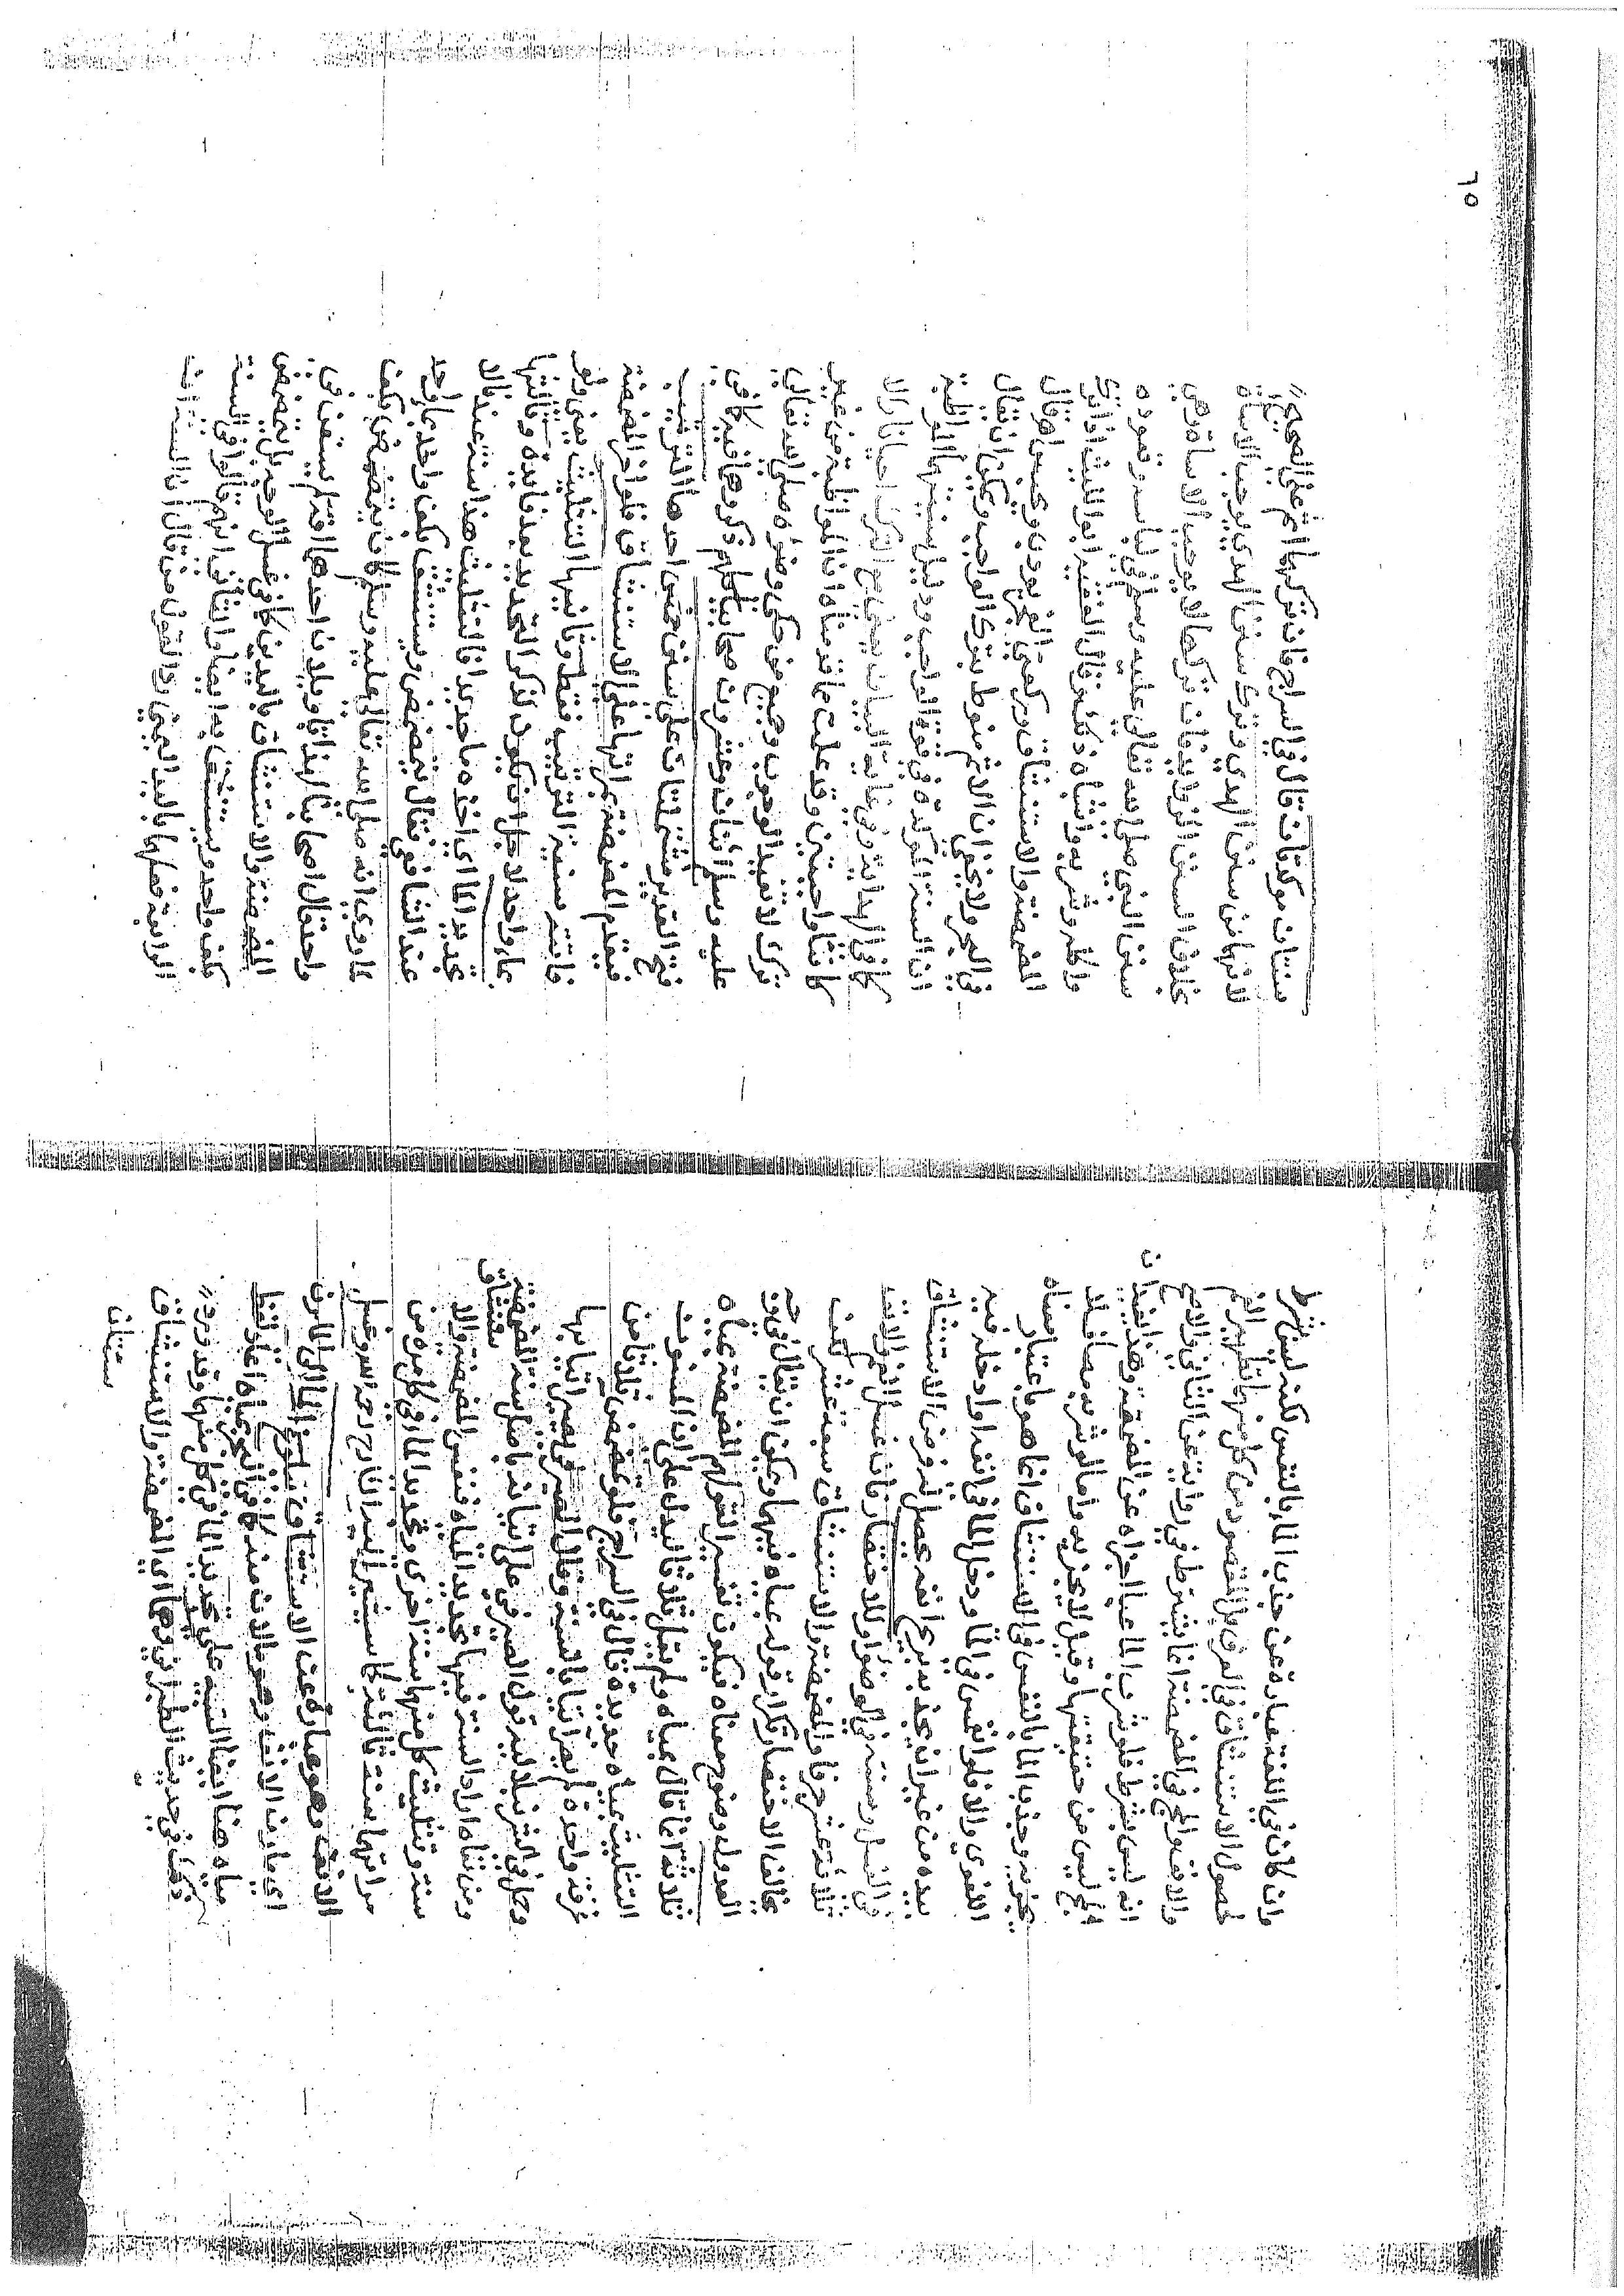 وان كان في اللغة عبارة عن جذب الماء بالنفس لكنه ليس بشرط
لحصول الاستنشاق في العرف بل المقصود من كل منهما تطهير الفم
والانف والمج في المضمضة انما يشترط في رواية عن الثاني والاصح
انه ليس بشرط فلو شرب الماء عبا اجزاه عن المضمضة وهذا يفيد ان
المج ليس من حقيقتها وقيل لا يجزيه واما لو شربه مصا فلا
يجزيه وجذب الماء بالنفس في الاستنشاق انما هو باعتبار معناه
اللغوي والا فلو انغمس في الماء ودخل الماء في انفه او ادخله فيه
بيده من غير ان يجذبه بريح انفه يحصل الفرض من الاستنشاق
في الغسل وسنته في الوضوء وللاختصار فان غسل الفم والانف
ثلاثة عشر حرفا والمضمضة والاستنشاق سبعة عشر لكن
يخالف الاختصار تكرار قوله بمياه فيهما ويمكن ان يقال في
العدول وضوح معناه فيكون تفسير المضمضة بمياه
ثلاثة انما قال بمياه ولم يقل ثلاثا ليدل على ان المسنون
التثليث بمياه جديدة قال في السراج فلو تمضمض ثلاثا من
غرفة واحدة لم يصر اتيا بالسنة وقال الصيرفي يصير اتيا بها
وحمل في النهر تبعا للبحر قول الصيرفي على اتيانه باصل سنة المضمضة
ومن نفاه اراد السنة فيها بتجديد المياه فنفس المضمضة والاستنشاق
سنة وتثليث كل منهما سنة اخرى وتجديد الماء في كل مرة من
مراتها سنة ثالثة كما سيشير اليه الشارح رحمه الله وغسل
الانف وهو عبارة عن الاستنشاق بلوغ الماء الى المارن
اي مارن الانف وهو ما لان منه كما في البحر بمياه اعاد لفظ
مياه هنا ايضا للتنبيه على تجديد الماء في كل منهما وقد ورد
ذلك في حديث الطبراني وهما اي المضمضة والاستنشاق
سنتان
٦٥
سنتان موكدتان قال في السراج فان تركهما اثم على الصحيح
لانهما من سنن الهدى وترك سنن الهدى يوجب الاساة
بخلاف السنن الزوائد فان تركها لا يوجب الاساة وهي
سنن النبي صلى الله تعالى عليه وسلم في لباسه وقعوده
واكله وشربه واشباه ذلك قال الفقيه ابو الليث اذا ترك
المضمضة والاستنشاق وركعتي الفجر يودب ويحبس اه قال
في البحر ولا يخفى ان الاثم منوط بترك الواجب ويمكن ان يقال
ان السنة الموكدة في قوة الواجب ودليل سنيتهما المواظبة
كما في الهداية وفي غاية البيان يعني مع الترك احيانا والا
كانتا واجبتين وقد علمت ما قدمناه ان المواظبة من غير
ترك لا تفيد الوجوب وجميع من حكى وضوءه صلى الله تعالى
عليه وسلم اثنان وعشرون صحابيا كلهم ذكروهما فيه كما في
فتح القدير مشتملتان على سنن خمس احدها الترتيب
فيقدم المضمضة بمراتها على الاستنشاق فلو اخر المضمضة
فاتته سنية الترتيب فقط وثانيها التثليث يعني ولو
بماء واحد لاجل ان يكون لذكر التجديد بعد فايدة وثالثها
تجديد الماء اي اخذه ماء جديدا في التثليث هذا سنة عندنا لا
عند الشافعي فقال يتمضمض ويستنشق بكف واحد بماء واحد
لما روي انه صلى الله تعالى عليه وسلم كان يتمضمض بكف
واحد قال اصحابنا لهذا تاويلان احدهما انه لم يستعن في
المضمضة والاستنشاق باليدين كما في غسل الوجه بل يتمضمض
بكف واحد ويستنشق به ايضا والثاني انهم قالوا في السنة
الرابعة فعلهما باليد اليمنى رد القول من قال ان السنة ان